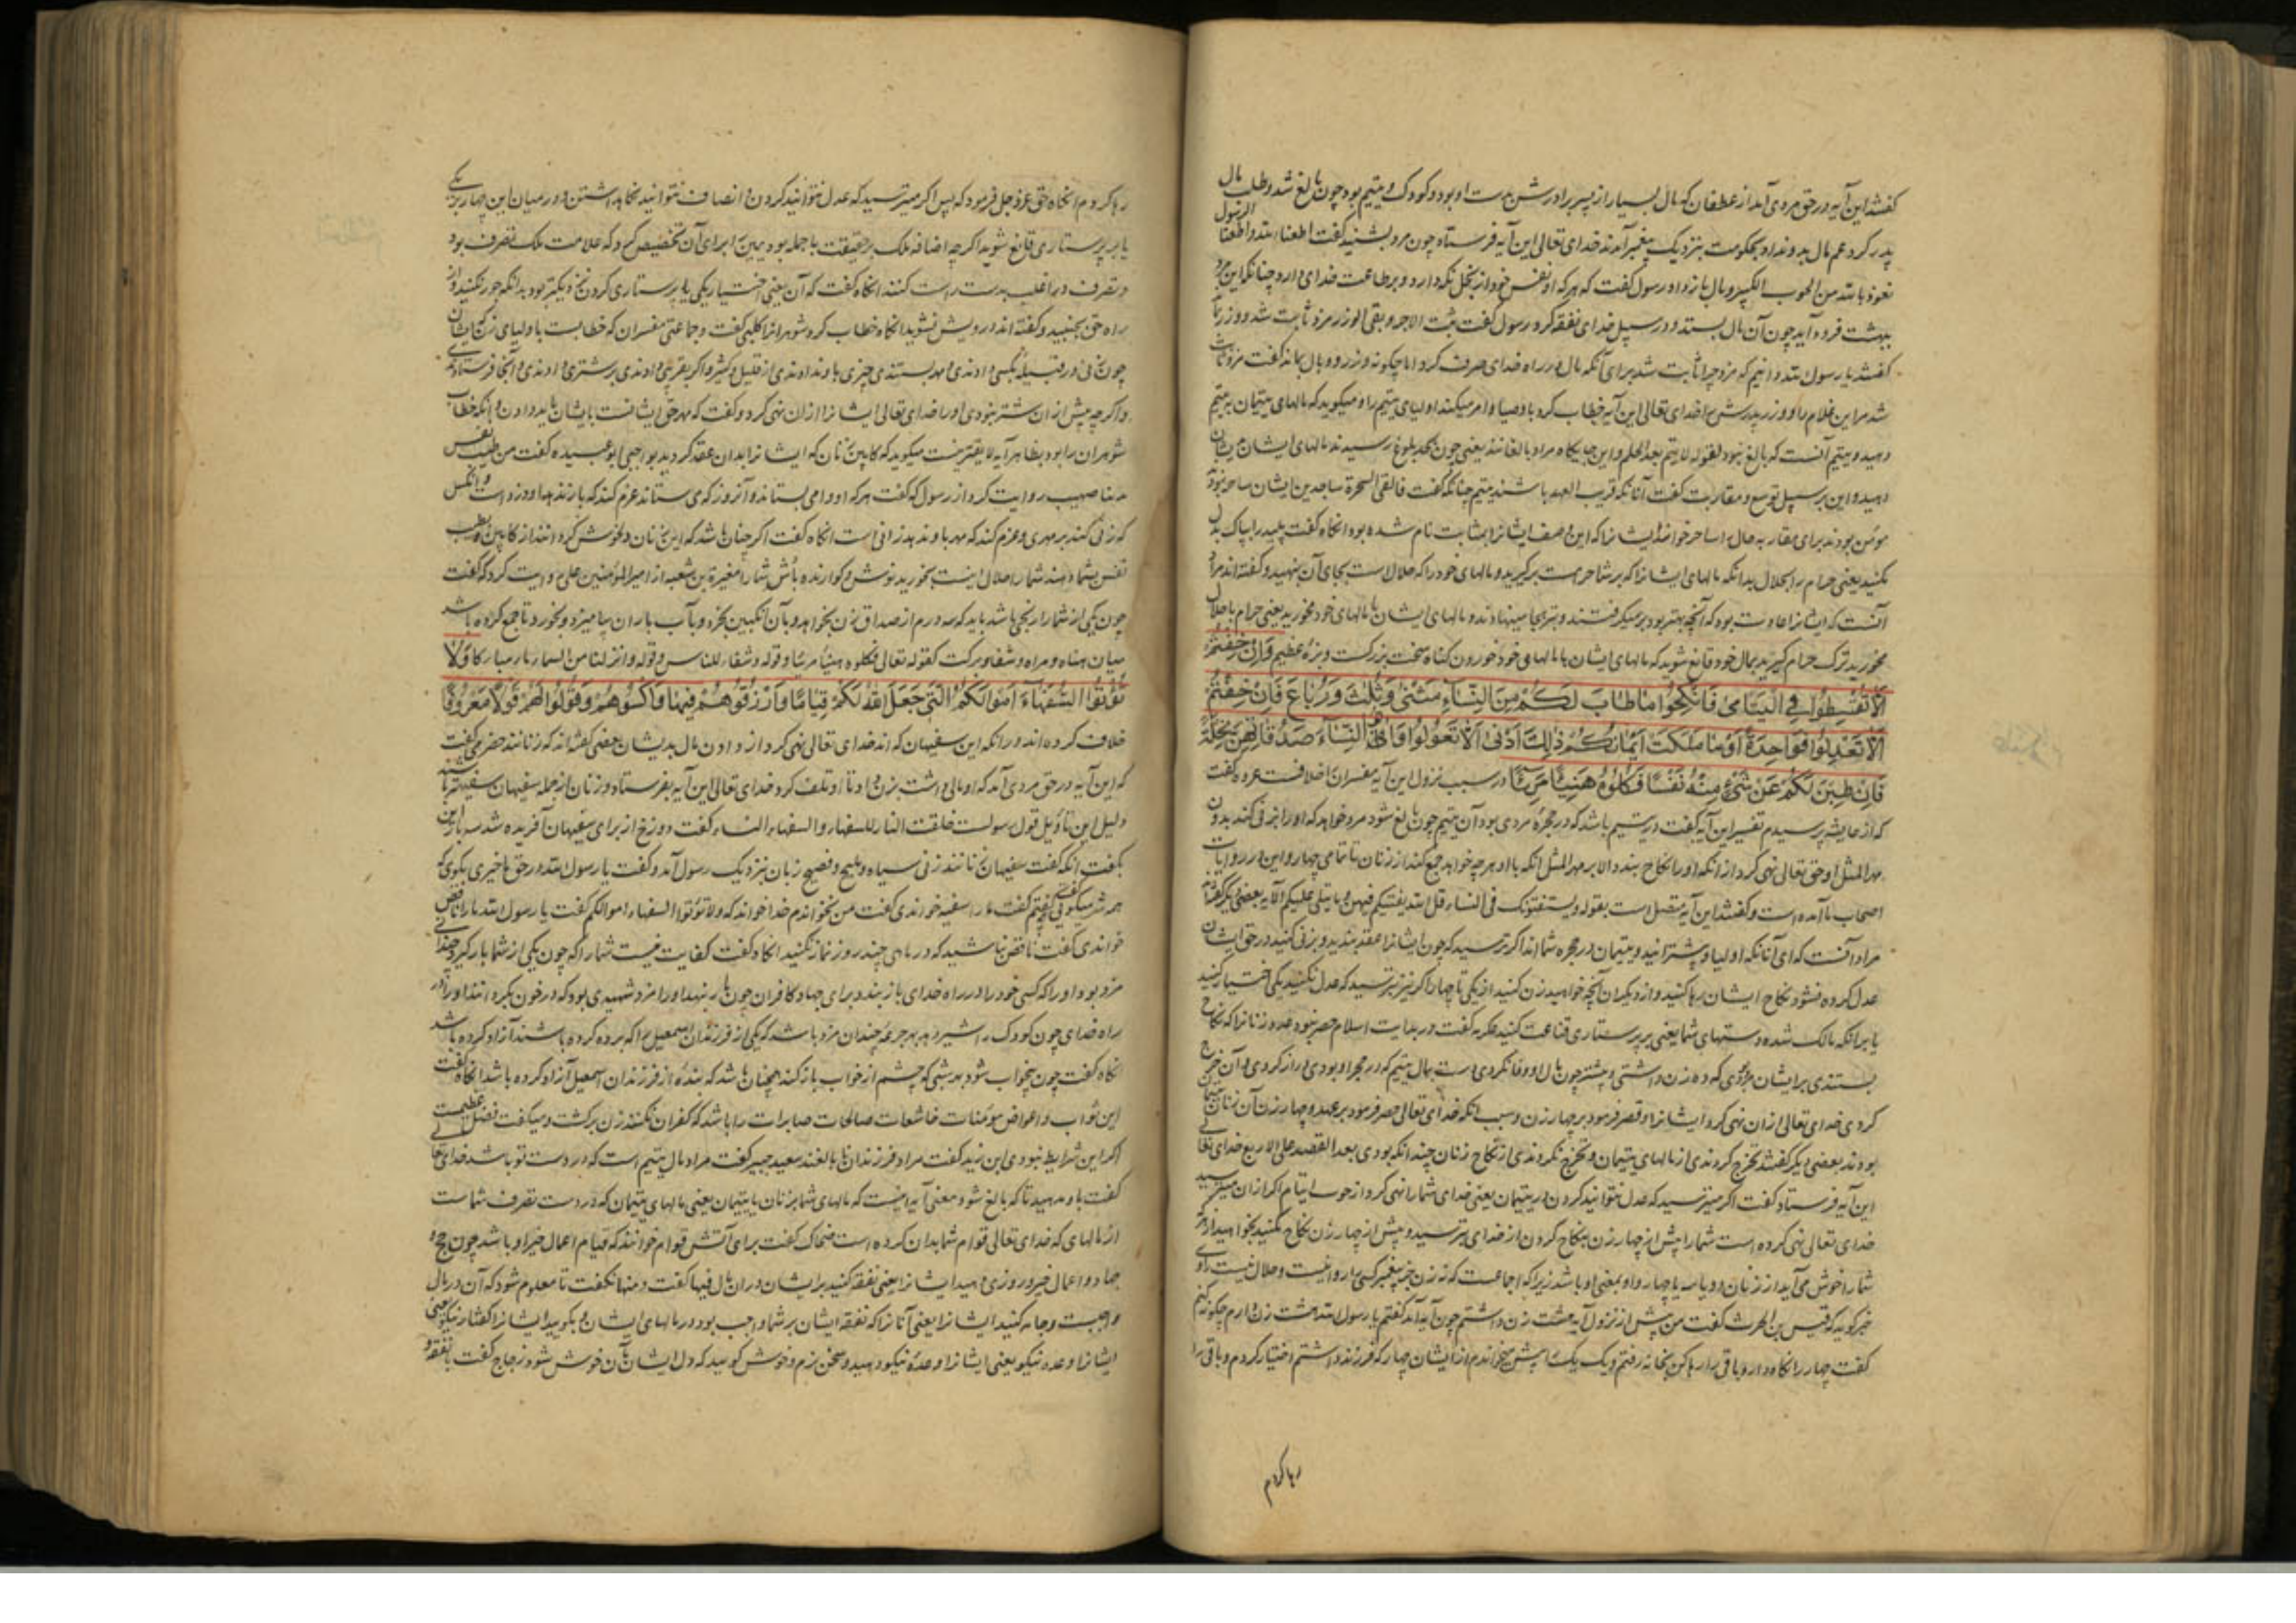 گفتند این آیه در حق مردی آمد از غطفان که مال بسیار از پسر برادرش بدست او بود و کودک و یتیم بود چون بالغ شد و طلب مال
پدر کرد عم مال بدو نداد بحکومت بنزدیک پیغمبر آمدند خدای تعالی این آیه فرستاد چون مرد بشنید گفت اطعنا الله و اطعنا الرسول
نعوذ بالله من الحوب الکبیر و مال باز داد رسول گفت که هر که او نفس خود از بخل نگه دارد و بر طاعت خدای دارد چنانکه این مرد
ببهشت فرود آید چون آن مال بستد و در سبیل خدای نفقه کرد رسول گفت ثبت الاجر و بقی الوزر مزد ثابت شد و وزر بماند
گفتند یا رسول الله دانیم که مزد چرا ثابت شد برای آنکه مال در راه خدای صرف کرد اما چگونه وزر و وبال بماند گفت مزد ثابت
شد مر این غلام را و وزر پدرش را خدای تعالی این آیه خطاب کرد با وصیا و امر میکند اولیای یتیم را و میگوید که مالهای یتیمان به یتیم
دهید و یتیم آنست که بالغ نبود لقوله لا یتم بعد الحلم و این جایگاه مراد بالغانند یعنی چون بحد بلوغ رسیدند مالهای ایشان بایشان
دهید و این بر سبیل توسع و مقاربت گفت آنانکه قریب العهد باشند بیتیم چنانکه گفت فالقی السحرة ساجدین ایشان ساحر نبودند
مؤمن بودند برای مقاربه حال را ساحر خواند ایشانرا که این وصف ایشانرا بمثابت نام شده بود آنگاه گفت پلید را بپاک بدل
مکنید یعنی حرام را بحلال بدانکه مالهای ایشانرا که بر شما حرمست برگیرید و مالهای خود را که حلالست بجای آن بنهید و گفته‌اند مراد
آنست که ایشانرا عادت بود که آنچه بهتر بود برمیگرفتند و بتر بجا مینهادند و مالهای ایشان با مالهای خود مخورید یعنی حرام با حلال
مخورید ترک حرام گیرید بمال خود قانع شوید که مالهای ایشان با مالهای خود خوردن گناه سخت بزرگست و بزهٔ عظیم وَاِنْ خِفْتُمْ
اَلَّا تُقْسِطُوا فِی الْیَتَامٰی فَانْکِحُوا مَا طَابَ لَکُمْ مِنَ النِّسَآءِ مَثْنٰی وَثُلٰثَ وَرُبَاعَ فَاِنْ خِفْتُمْ
اَلَّا تَعْدِلُوا فَوَاحِدَةً اَوْ مَا مَلَکَتْ اَیْمَانُکُمْ ذٰلِکَ اَدْنٰی اَلَّا تَعُولُوا وَاٰتُوا النِّسَآءَ صَدُقَاتِهِنَّ نِحْلَةً
فَاِنْ طِبْنَ لَکُمْ عَنْ شَیْءٍ مِنْهُ نَفْسًا فَکُلُوهُ هَنِیئًا مَرِیئًا در سبب نزول این آیه مفسران اخلافت عروه گفت
که از عایشه پرسیدم تفسیر این آیه گفت در یتیم باشد که در حجرهٔ مردی بود آن یتیم چون بالغ شود مرد خواهد که او را بزنی کند بدون
مهر المثل او حق تعالی نهی کرد از آنکه او را نکاح بندد الا بر مهر المثل آنکه با او هر چه خواهد جمع کند از زنان تا تمامی چهار و این در روایات
اصحاب ما آمده است و گفتند این آیه متصل است بقوله ویستفتونک فی النساء قل الله یفتیکم فیهن و ما یتلی علیکم الآیه بعضی دیگر گفتند
مراد آنست که ای آنانکه اولیا و یتیمان در حجره شما اند اگر ترسید که چون ایشانرا عقد بندید و بزنی کنید در حق ایشان
عدل کرده نشود نکاح ایشان رها کنید و از دیگران آنچه خواهید زن کنید از یکی تا چهار اگر نیز ترسید که عدل نکنید یکی اختیار کنید
یا برانکه مالک شده دستهای شما یعنی بر پرستاری قناعت کنید عکرمه گفت در بدایت اسلام حصر نبود عدد زنانرا که نکاح
بستندی بر ایشان مردی که ده زن داشتی و بیشتر چون مال او وفا نکردی دست بمال یتیم که در حجر او بودی دراز کردی و آن خرج
کردی خدای تعالی از آن نهی کرد ایشانرا و قصر فرمود بر چهار زن و سبب آنکه خدای تعالی حصر فرمود بر عدد چهار زن آن زنان یتیمان
بودند بعضی دیگر گفتند تحرج کردندی از مالهای یتیمان و تحرج نکردندی از نکاح زنان چندانکه بودی بعد القصد علی الاربع خدای تعالی
این آیه فرستاد گفت اگر میترسید که عدل نتوانید کردن در یتیمان یعنی خدای شما را نهی کرد از حوب ایتام اگر ازان میترسید
خدای تعالی نهی کرده است شما را بیش از چهار زن بنکاح کردن از خدای بترسید و بیش از چهار زن نکاح مکنید بخواهید از آنکه
شما را خوش می‌آید از زنان دو یا سه یا چهار واو بمعنی او باشد زیرا که اجماعست که نه زن جز پیغمبر کسی را روا نیست و حلال نیست راوی
خبر گوید که قیس بن الحرث گفت من پیش از نزول آیه هشت زن داشتم چون آیه آمد گفتم یا رسول الله هشت زن دارم چگونه کنم
گفت چهار را نگاه دار و باقی را رها کن بخانه رفتم و یک یک را پیش میخواندم از ایشان چهار که فرزند داشتم اختیار کردم و باقی را
رها کردم
رها کردم آنگاه حق عز و جل فرمود که پس اگر میترسید که عدل نتوانید کردن و انصاف نتوانید نگاه داشتن در میان این چهار بر یکی
یا بر پرستاری قانع شوید اگر چه اضافه ملک بر حقیقت با جمله بود یمین را برای آن تخصیص کرد که علامت ملک تصرف بود
و تصرف در اغلب بدست راست کنند آنگاه گفت که آن یعنی اختیار یکی یا پرستاری کردن نزدیکتر بود بدانکه جور نکنید و از
راه حق بنجنبید و گفته‌اند درویش نشوید آنگاه خطاب کرد شوهرانرا کلبی گفت و جماعتی مفسران که خطابست با اولیای زن که ایشان
چون زنی در قبیله بکسی دادندی و مهر بستندی چیزی باو ندادندی از قلیل و کثیر و اگر بغریبی دادندی بر شتری دادندی و آنجا فرستادندی
و اگر چه بیش از آن شتر نبودی او را خدای تعالی ایشانرا ازان نهی کرد و گفت که مهر حق ایشانست بایشان باید دادن و آنکه خطاب
شوهران را بود بظاهر آیه لایقترست میگوید که کابین زنان که ایشانرا بدان عقد کردید بواجبی ابو عبیده گفت من طیب نفس
صهیب روایت کرد از رسول که گفت هر که او وامی بستاند و آنروز که می ستاند عزم کند که باز ندهد او دزد است و آنکس
که زنی کند بر مهری و عزم کند که مهر باو ندهد زانی است آنگاه گفت اگر چنان باشد که این زنان دلخوش گردانند از کابین و بطیب
نفس بشما دهند شما را حلال است بخورید نوش و گوارنده باش شما را مغیرة بن شعبه از امیر المؤمنین علی روایت کرد که گفت
چون یکی از شما را رنجی باشد باید که سه درم از صداق زن بخواهد و بآن انگبین بخرد و بآب باران بیامیزد و بخورد تا جمع کرده باشد
میان هناه و مراه و شفا و برکت کقوله تعالی فکلوه هنیئا مریئا و قوله و شفاء للناس و قوله و انزلنا من السماء ماء مبارکا وَلَا
تُؤْتُوا السُّفَهَآءَ اَمْوَالَکُمُ الَّتِی جَعَلَ اللهُ لَکُمْ قِیَامًا وَارْزُقُوهُمْ فِیهَا وَاکْسُوهُمْ وَقُولُوا لَهُمْ قَوْلًا مَعْرُوفًا
خلاف کرده‌اند در آنکه این سفیهان که اند خدای تعالی نهی کرد از دادن مال بدیشان بعضی گفته‌اند که زنانند حضرمی گفت
که این آیه در حق مردی آمد که او مالی داشت بزن داد تا او تلف کرد خدای تعالی این آیه بفرستاد و زنان از جمله سفیهان سفیه‌تر باشند
دلیل این تاویل قول رسولست خلقت النار للسفهاء و السفهاء النساء گفت دوزخ از برای سفیهان آفریده شد سه بار این
بگفت آنگه گفت سفیهان زنانند زنی سیاه و ملیح و فصیح زبان بنزدیک رسول آمد و گفت یا رسول الله در حق ما خیری بگوی که
همه شر میگوئی گفت چه گفتم گفت ما را سفیه خواندی گفت من نخواندم خدا خواند که ولا تؤتوا السفهاء اموالکم گفت یا رسول الله ما را ناقص
خواندی گفت ناقص نباشید که در ماهی چند روز نماز نکنید آنگاه گفت کفایت نیست شما را که چون یکی از شما بار گیرد چندانی
مزد بود او را که کسی خود را در راه خدای باز بندد برای جهاد کافران چون بار بنهد او را مزد شهیدی بود که در خون بگردانند او را در
راه خدای چون کودک را شیر دهد بهر جرعه چندان مزد باشد که یکی از فرزندان اسمعیل را که برده کرده باشند آزاد کرده باشد
آنگاه گفت چون بخواب شود بهر شبی که چشم از خواب باز کند همچنان باشد که بندهٔ از فرزندان اسمعیل آزاد کرده باشد آنگاه گفت
این ثواب و اعواض مؤمنات خاشعات صالحات صابرات را باشد که کفران نکنند زن برگشت و میگفت فضل عظیمست
اگر این شرایط نبودی ابن زید گفت مراد فرزندان نا بالغند سعید جبیر گفت مراد مال یتیم است که در دست تو باشد خدای تعالی
گفت باو مدهید تا که بالغ شود معنی آیه اینست که مالهای شما بزنان یا یتیمان یعنی مالهای یتیمان که در دست تصرف شماست
از مالهای که خدای تعالی قوام شما بدان کرده است ضحاک گفت برای آنش قوام خوانند که قیام اعمال خیر او باشد چون حج و
جهاد و اعمال خیر و روزی دهید ایشانرا یعنی نفقه کنید بر ایشان دران مال فیها گفت و منها نگفت تا معلوم شود که آن در مال
واجبست و جامه کنید ایشانرا یعنی آنانرا که نفقه ایشان بر شما واجب بود در مالهای ایشان و بگویید ایشانرا گفتار نیکو یعنی
ایشانرا وعده نیکو یعنی ایشانرا وعدهٔ نیکو دهید و سخن نرم و خوش گوئید که دل ایشان بآن خوش شود زجاج گفت با نفقه و